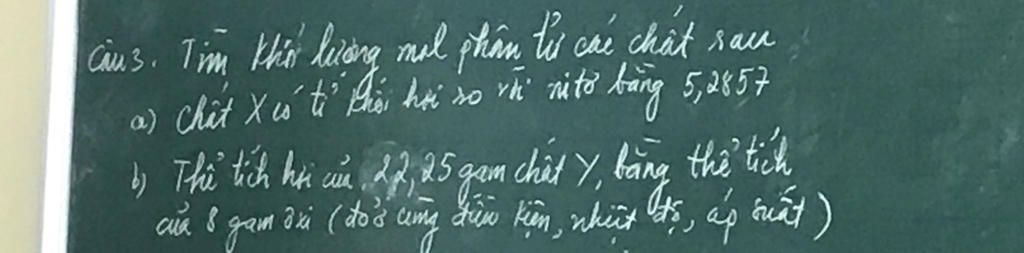 Câu 3. Tìm khối lượng mol phân tử các chất sau
a) Chất X có tỉ khối hơi so với nitơ bằng 5,2857
b) Thể tích hơi của 22,25 gam chất Y, bằng thể tích
của 8 gam oxi (đo ở cùng điều kiện, nhiệt độ, áp suất)